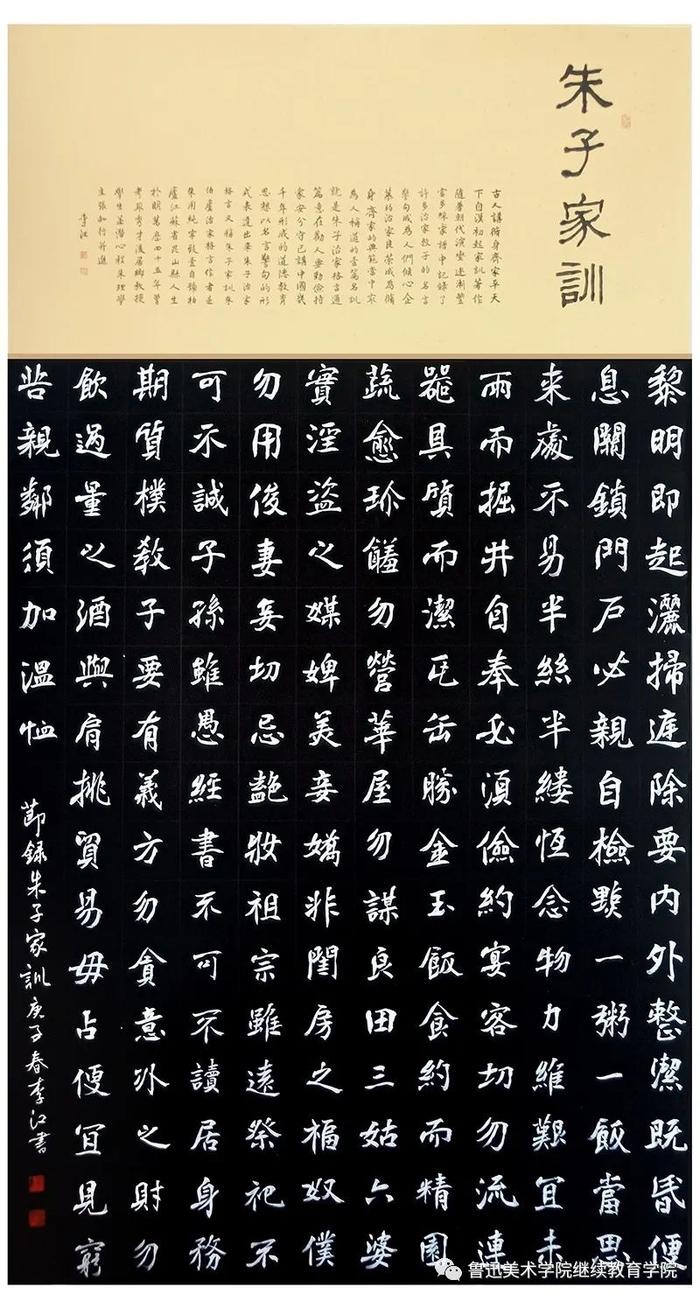 朱子家訓
古人講脩身齊家平天
下自漢初起家訓著作
隨著朝代演變逐漸豐
富多綵家譜中記錄了
許多治家教子的名言
警句成為人們傾心企
慕的治家良策成為脩
身齊家的典範當中最
為人稱道的壹篇名訓
就是朱子治家格言通
篇意在勸人要勤儉持
家安分守己講中國幾
千年形成的道德教育
思想以名言警句的形
式表達出來朱子治家
格言又稱朱子家訓朱
伯廬治家格言作者是
朱用純字致壹自號柏
廬江蘇省崑山縣人生
於明萬曆四十五年
考取秀才後居鄉教授
學生並潛心程朱理學
主張知行并進
李江
黎明即起灑掃庭除要內外整潔既昏便
息關鎖門戶必親自檢點一粥一飯當思
來處不易半絲半縷恆念物力維艱宜未
雨而掘井自奉必須儉約宴客切勿流連
器具質而潔瓦缶勝金玉飯食約而精園
蔬愈珍饈勿營華屋勿謀良田三姑六婆
實淫盜之媒婢美妾嬌非閨房之福奴僕
勿用俊妻妾切忌艷妝祖宗雖遠祭祀不
可不誠子孫雖愚經書不可不讀居身務
期質樸教子要有義方勿貪意外之財勿
飲過量之酒與肩挑貿易毋占便宜見窮
苦親鄰須加溫恤
節録朱子家訓庚子春李江書
鲁迅美术学院继续教育学院